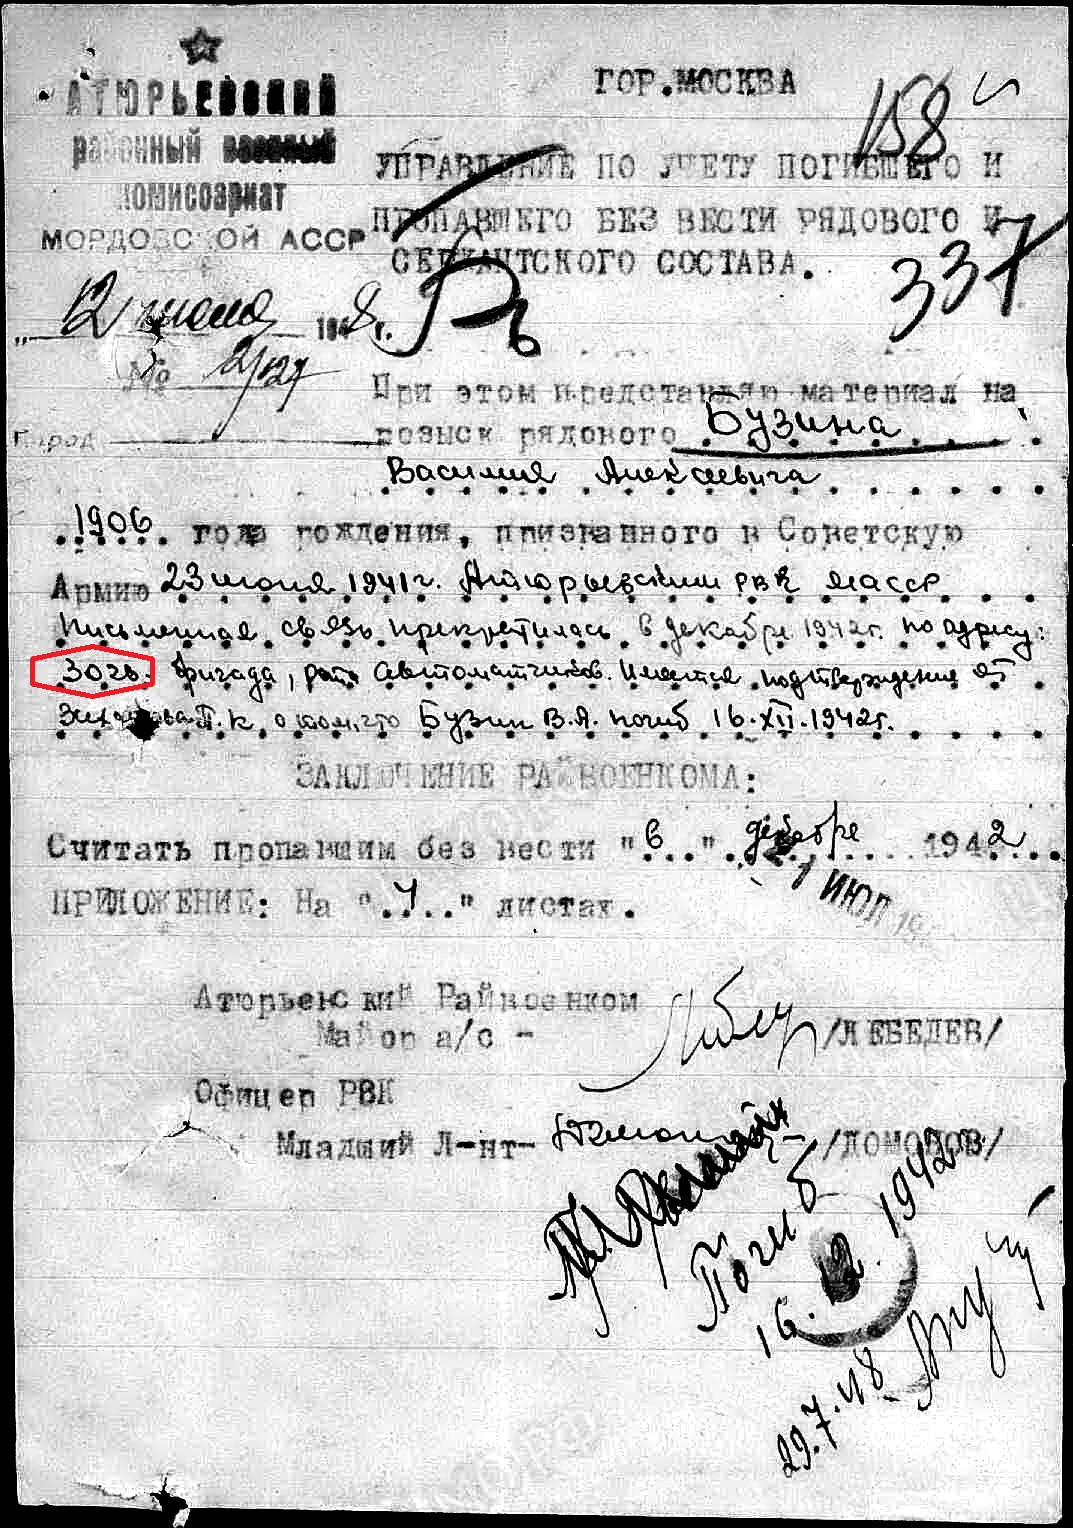 АТЮРЬЕВСКИЙ
районный военный
комиссариат
МОРДОВСКОЙ АССР
"12 июля 1948 г.
№ 2/127
Город
ГОР.МОСКВА
158
УПРАВЛЕНИЕ ПО УЧЕТУ ПОГИБШЕГО И
ПРОПАВШЕГО БЕЗ ВЕСТИ РЯДОВОГО И
СЕРЖАНТСКОГО СОСТАВА.
337
При этом представляю материал на
розыск рядового Бузина
Василия Алексеевича
1906 года рождения, призванного в Советскую
Армию 23 июня 1941 г. Атюрьевским РВК МАССР
Письменная связь прекратилась в декабре 1942г. по адресу:
бригада, рота автоматчиков. Имеется подтверждение от
Т.К. о том, что Бузин В.А. погиб 16.XII.1942г.
ЗАКЛЮЧЕНИЕ РАЙВОЕНКОМА:
Считать пропавшим без вести "в" декабре 1942
1 ИЮЛ 19
ПРИЛОЖЕНИЕ: На "4" листах.
Атюрьевский Райвоенком
Майор а/с - /ЛЕБЕДЕВ/
Офицер РВК
Младший Л-нт- /ДОМОНОВ/
Погиб
16.12.1942г.
29.7.48